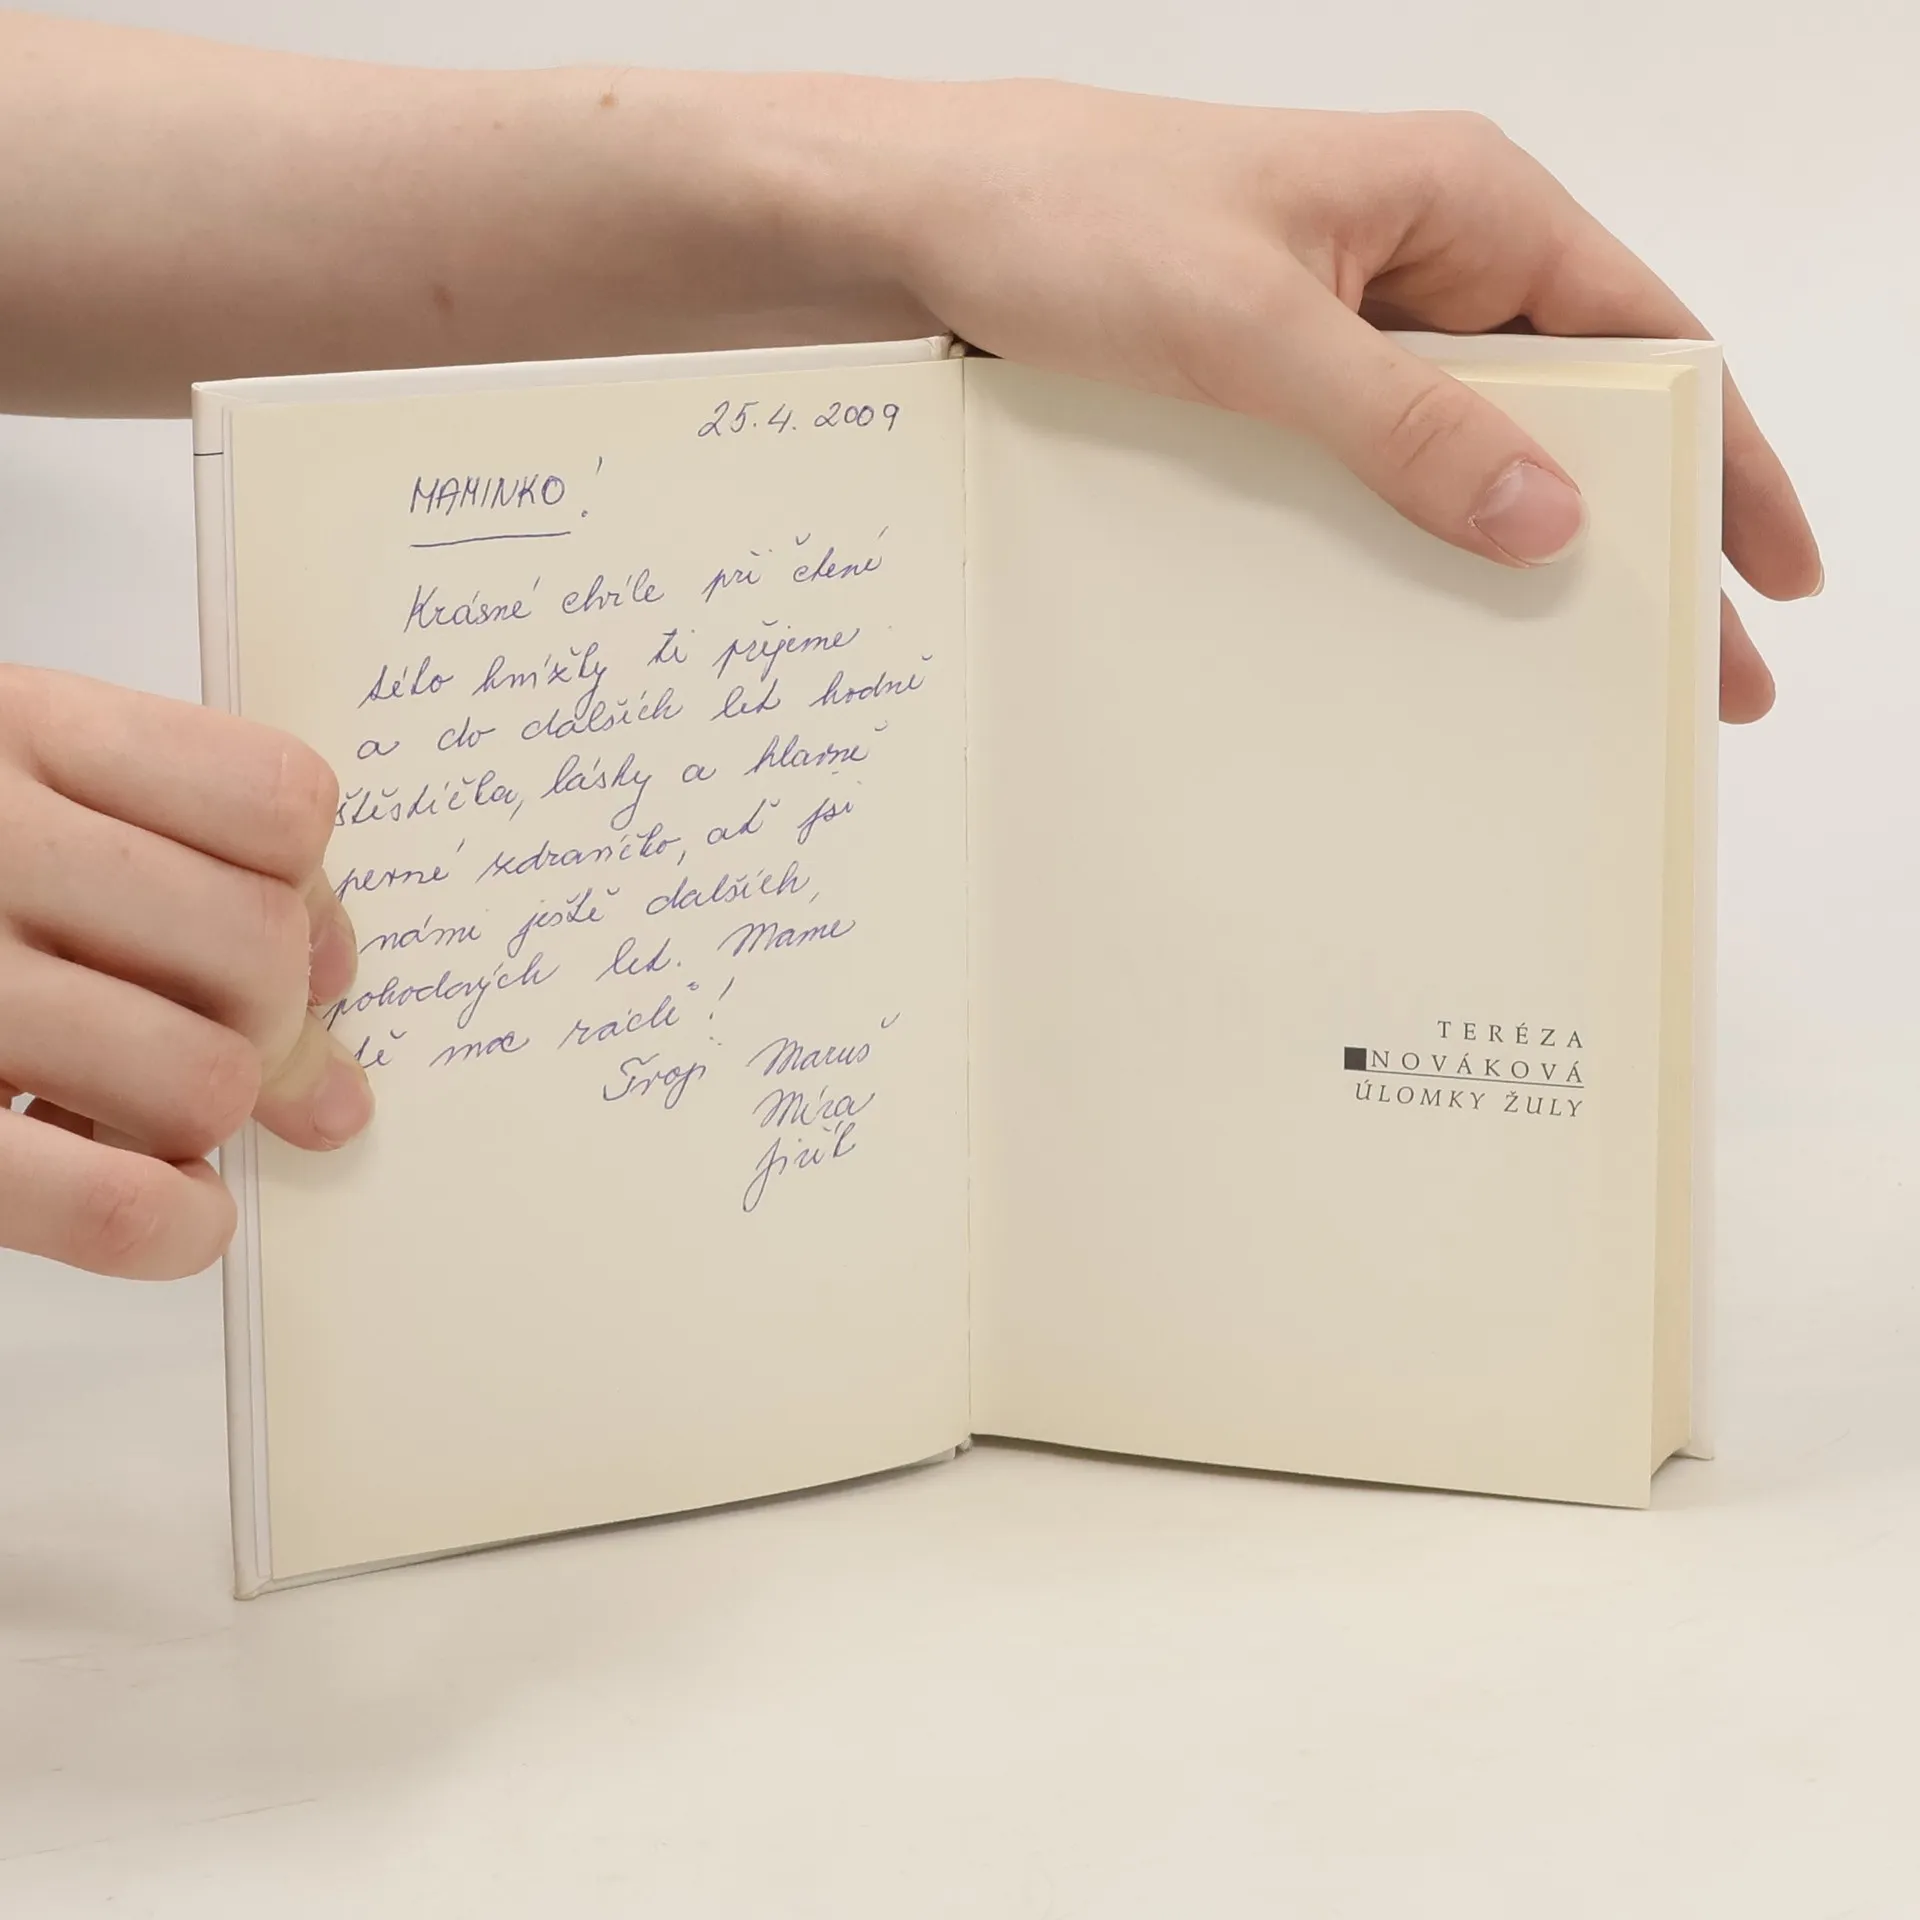 25.4. 2009
MAMINKO!
Krásné chvíle při čtení
této knížky ti přejeme
a do dalších let hodně
štěstíčka, lásky a hlavně
pevné zdravíčko, ať jsi
námi ještě dalších,
pohodových let. Máme
tě moc rádi!
Tvoji Maruš
Míra
Jiřík
TERÉZA
NOVÁKOVÁ
ÚLOMKY ŽULY